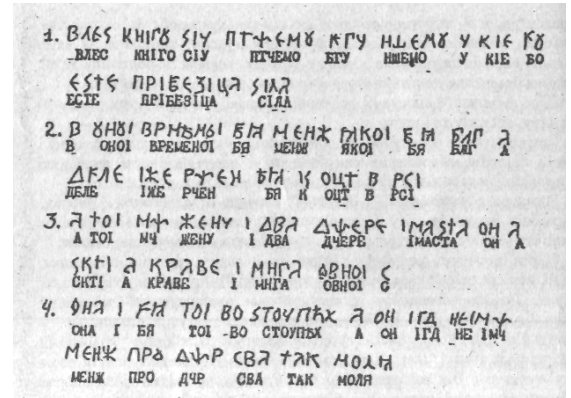 1. ВЛЕS КНІГꙊ SІУ ПТѰЕМꙊ БГУ НШЕМꙊ У КІЕ БꙊ
ВЛЕС КНІГО СІУ ПТЧЕМО БГУ НШЕМО У КІЕ БО
ЕSТЕ ПРІБЕЗІЦА SІЛА
ЕСТЕ ПРІБЕЗІЦА СІЛА
2. В ꙊНꙊІ ВРМЕНꙊІ БЯ МЕНЖ ЯКОІ БЯ БЛГ А
В ОНОІ ВРЕМЕНОІ БЯ МЕНЖ ЯКОІ БЯ БЛГ А
ДЕЛЕ ІЖЕ РЧЕН БЯ И ОЦТ В РСІ
ДЕЛЕ ІЖЕ РЧЕН БЯ И ОЦТ В РСІ
3. А ТОІ МѰ ЖЕНУ І ДВА ДѰЕРЕ ІМАSТА ОН А
А ТОІ МЧ ЖЕНУ І ДВА ДЧЕРЕ ІМАСТА ОН А
СКТІ А КРАВЕ І МНГА ОВНОІ С
СКТІ А КРАВЕ І МНГА ОВНОІ С
4. ОНА І БЯ ТОІ ВО SТОУПЪХ А ОН ІГД НЕІМѰ
ОНА І БЯ ТОІ ВО СТОУПЪХ А ОН ІГД НЕ ІМЧ
МЕНЖ ПРО ДѰР СВА ТАК МОЛЯ
МЕНЖ ПРО ДЧР СВА ТАК МОЛЯ